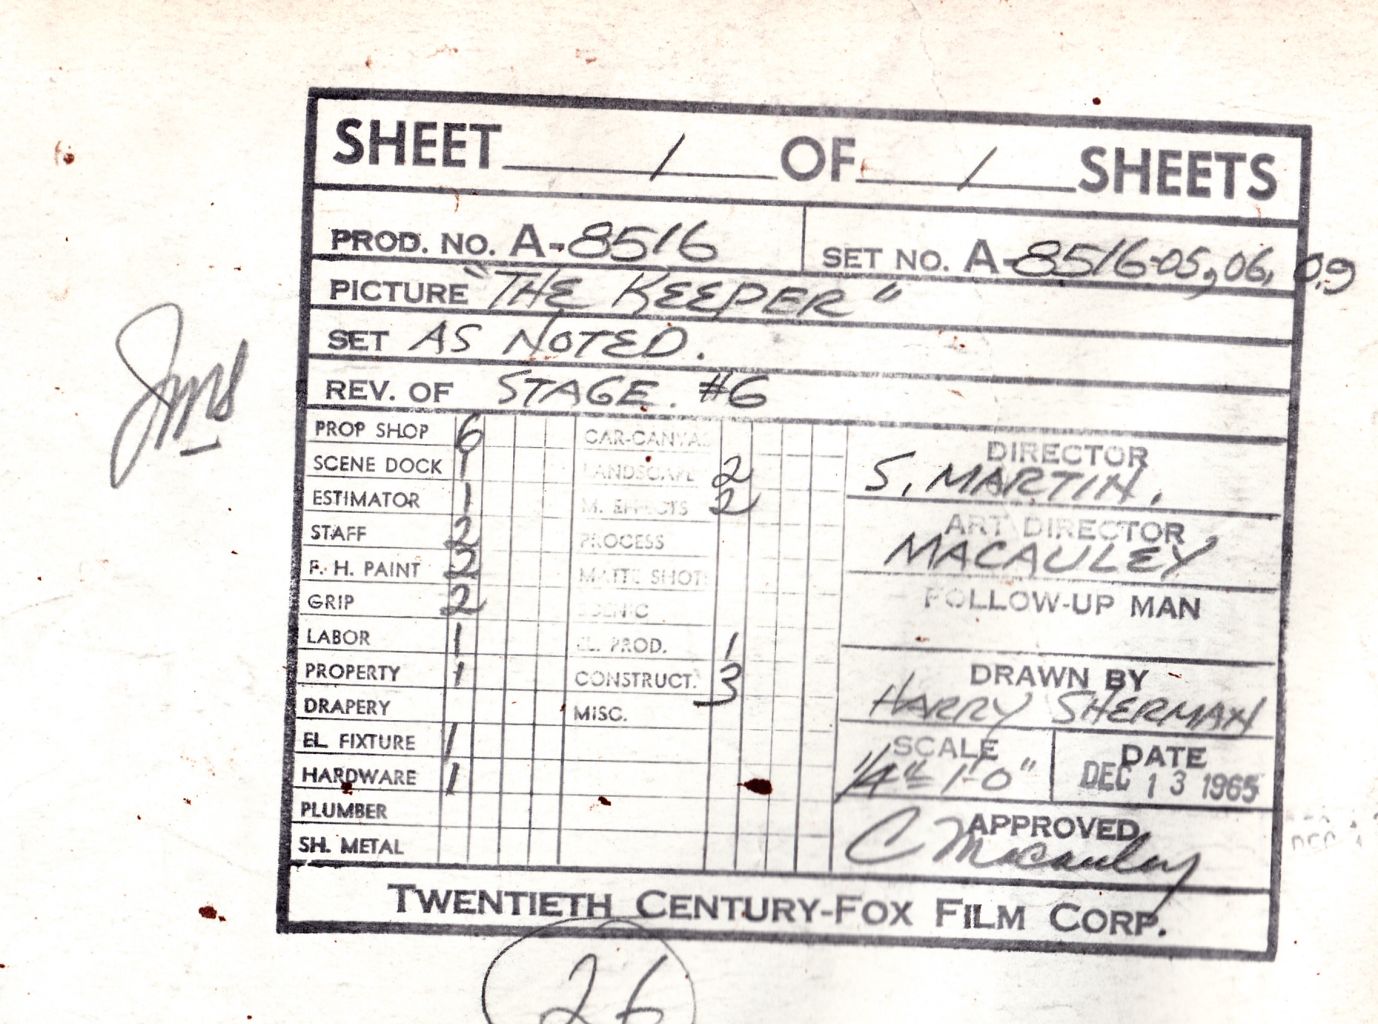 SHEET 1 OF 1 SHEETS
PROD. NO. A-8516 SET NO. A-8516-05, 06, 09
PICTURE "THE KEEPER"
SET AS NOTED.
REV. OF STAGE. #6
PROP SHOP 6
SCENE DOCK 1
ESTIMATOR 1
STAFF 2
F. H. PAINT 2
GRIP 2
LABOR 1
PROPERTY 1
DRAPERY
EL FIXTURE 1
HARDWARE 1
PLUMBER
SH. METAL
CAR-CANVAS
LANDSCAPE 2
M. EFFECTS 2
PROCESS
MATTE SHOT
SCENIC
EL. PROD. 1
CONSTRUCT. 3
MISC.
DIRECTOR
S. MARTIN.
ART DIRECTOR
MACAULEY
FOLLOW-UP MAN
DRAWN BY
HARRY SHERMAN
SCALE
1/4" = 1'-0"
DATE
DEC 13 1965
APPROVED
C Macauley
TWENTIETH CENTURY-FOX FILM CORP.
26